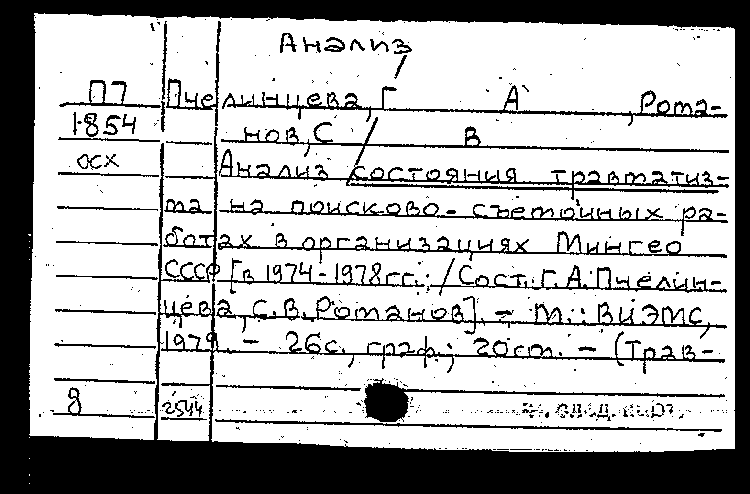 Анализ
П7 Пчелинцева, Г А , Рома-
1-854 нов, С В
осх Анализ состояния травматиз-
ма на поисково-съемочных ра-
ботах в организациях Мингео
СССР [в 1974-1978гг.; / Сост. Г. А. Пчелин-
цева, С. В. Романов]. - М.: ВИЭМС,
1979. - 26с., граф.; 20см. - (Трав-
8 2544 см. след. карт.